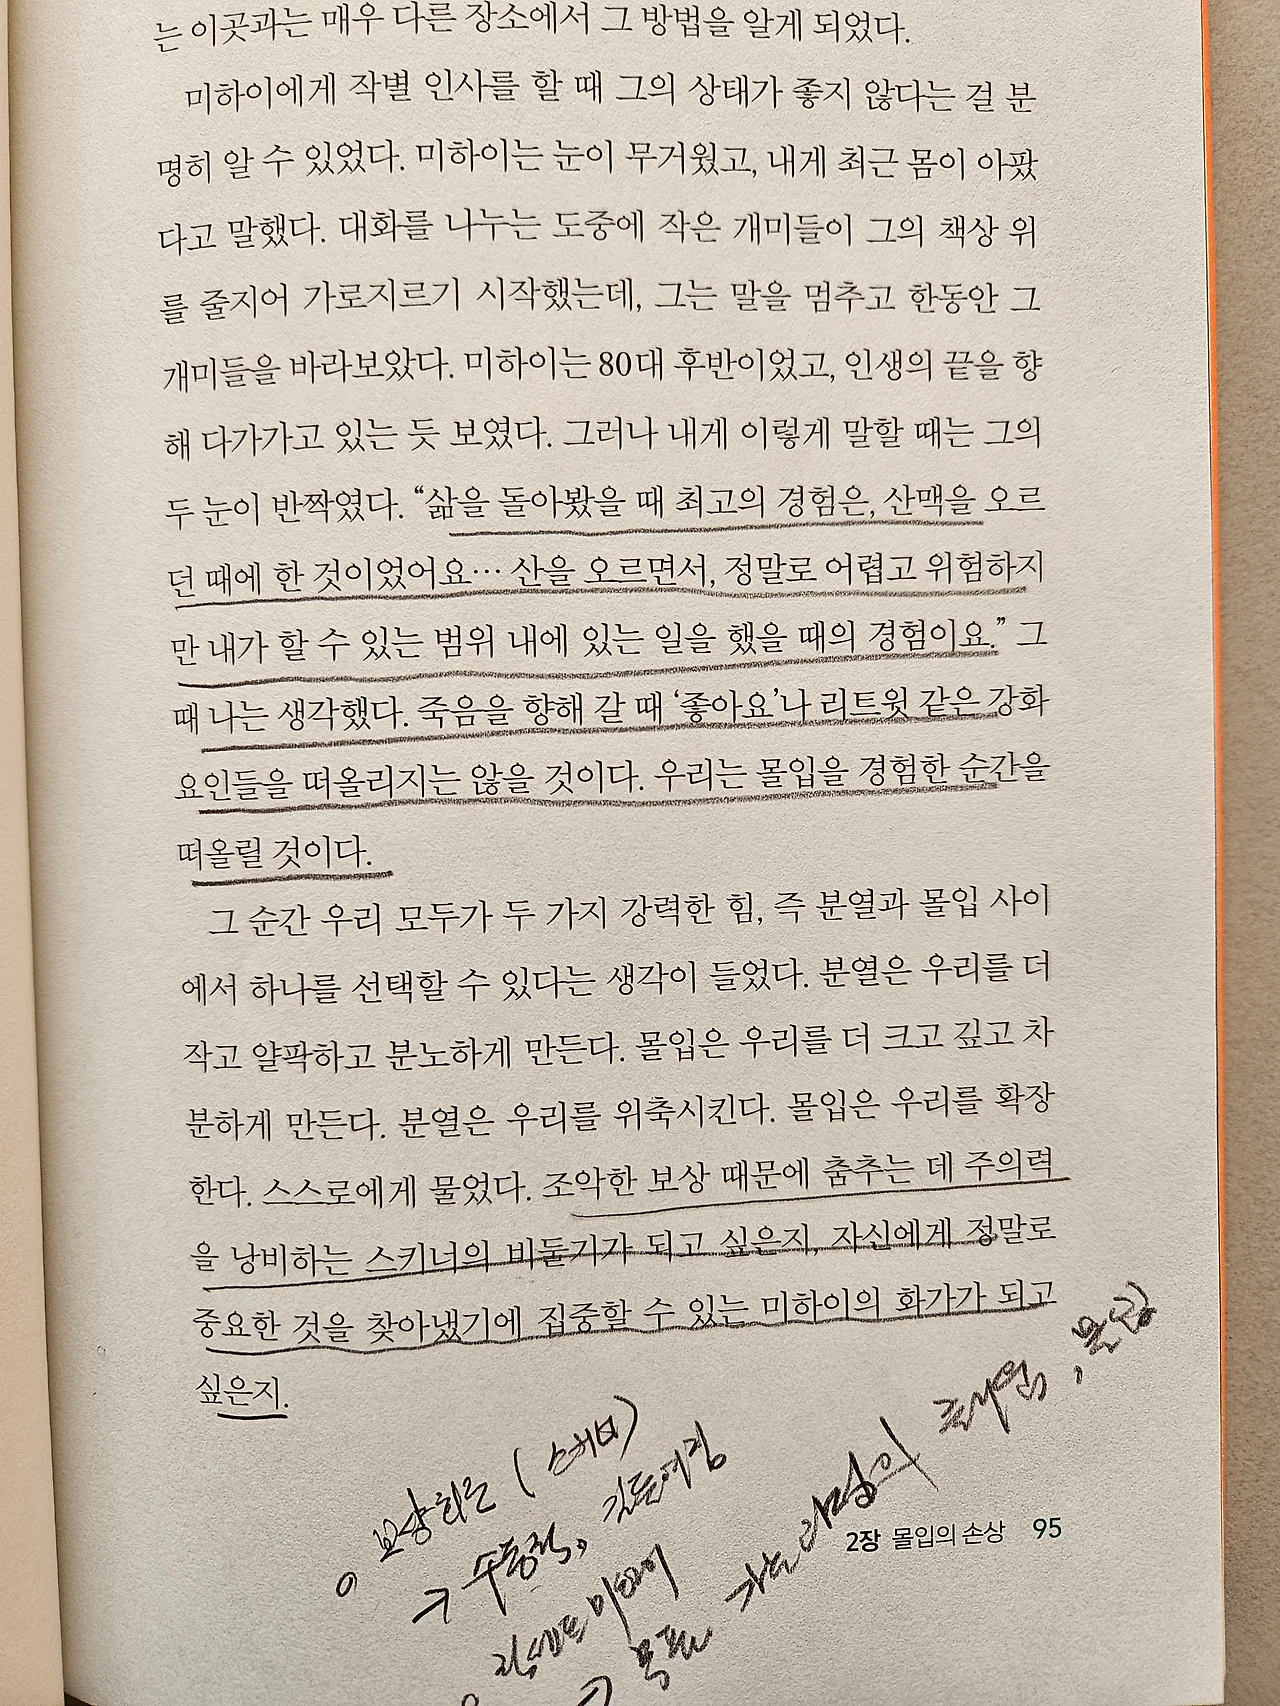 는 이곳과는 매우 다른 장소에서 그 방법을 알게 되었다.
미하이에게 작별 인사를 할 때 그의 상태가 좋지 않다는 걸 분
명히 알 수 있었다. 미하이는 눈이 무거웠고, 내게 최근 몸이 아팠
다고 말했다. 대화를 나누는 도중에 작은 개미들이 그의 책상 위
를 줄지어 가로지르기 시작했는데, 그는 말을 멈추고 한동안 그
개미들을 바라보았다. 미하이는 80대 후반이었고, 인생의 끝을 향
해 다가가고 있는 듯 보였다. 그러나 내게 이렇게 말할 때는 그의
두 눈이 반짝였다. “삶을 돌아봤을 때 최고의 경험은, 산맥을 오르
던 때에 한 것이었어요… 산을 오르면서, 정말로 어렵고 위험하지
만 내가 할 수 있는 범위 내에 있는 일을 했을 때의 경험이요.” 그
때 나는 생각했다. 죽음을 향해 갈 때 ‘좋아요’나 리트윗 같은 강화
요인들을 떠올리지는 않을 것이다. 우리는 몰입을 경험한 순간을
떠올릴 것이다.
그 순간 우리 모두가 두 가지 강력한 힘, 즉 분열과 몰입 사이
에서 하나를 선택할 수 있다는 생각이 들었다. 분열은 우리를 더
작고 얄팍하고 분노하게 만든다. 몰입은 우리를 더 크고 깊고 차
분하게 만든다. 분열은 우리를 위축시킨다. 몰입은 우리를 확장
한다. 스스로에게 물었다. 조악한 보상 때문에 춤추는 데 주의력
을 낭비하는 스키너의 비둘기가 되고 싶은지, 자신에게 정말로
중요한 것을 찾아냈기에 집중할 수 있는 미하이의 화가가 되고
싶은지.
→ 수동적, 길들여짐
→ 목표 가는 과정의
2장 몰입의 손상 95